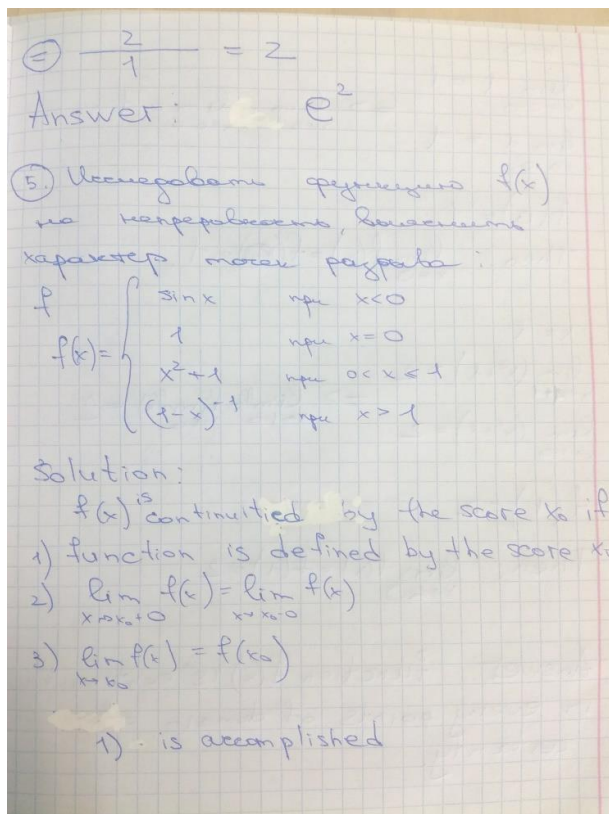 = 2/1 = 2
Answer: e^2
5. Исследовать функцию f(x)
на непрерывность, выяснить
характер точек разрыва:
f
f(x) = { sin x при x<0
1 при x=0
x^2+1 при 0<x≤1
(1-x)^-1 при x>1
Solution:
f(x) is continuitied by the score x₀ if
1) function is defined by the score x₀
2) lim x→x₀+0 f(x) = lim x→x₀-0 f(x)
3) lim x→x₀ f(x) = f(x₀)
1) is accomplished